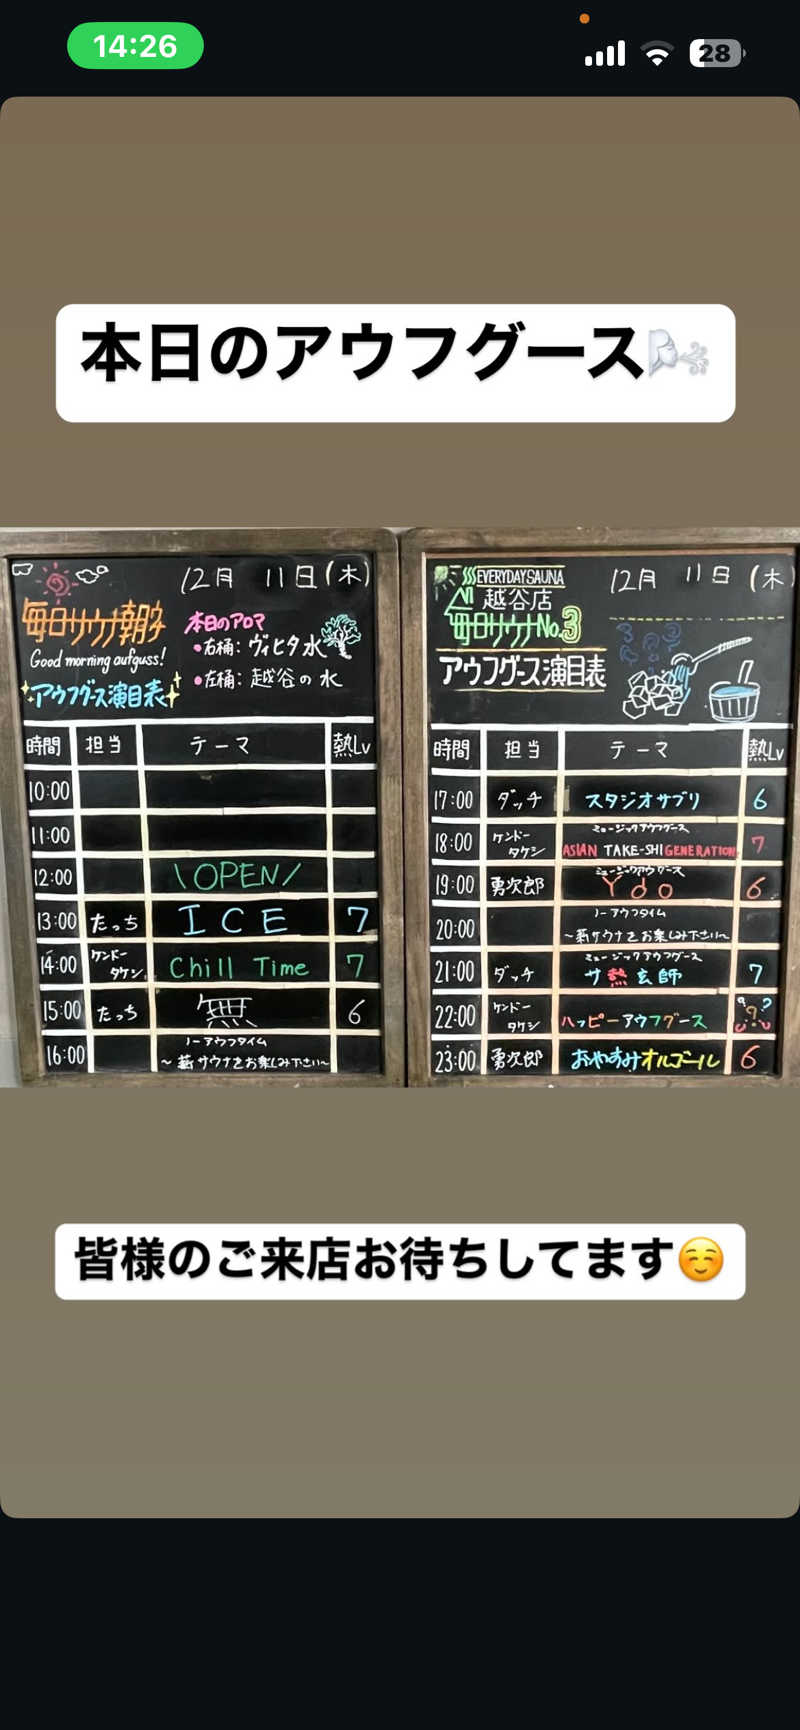 14:26
28
本日のアウフグース🌬️
12月 11日(木)
毎日サウナ朝子
Good morning aufguss!
アウフグース演目表
本日のアロマ
•右桶: ヴィヒタ水
•左桶: 越谷の水
時間 担当 テーマ 熱Lv
10:00
11:00
12:00 \OPEN/
13:00 たっち ICE 7
14:00 ケンドータケシ Chill Time 7
15:00 たっち 無 6
16:00 ノーアウフタイム
〜薪サウナをお楽しみ下さい〜
EVERYDAYSAUNA
越谷店
毎日サウナNo.3
アウフグース演目表
12月 11日(木)
時間 担当 テーマ 熱Lv
17:00 ダッチ スタジオサプリ 6
18:00 ケンドータケシ ミュージックアウフグース ASIAN TAKE-SHI GENERATION 7
19:00 勇次郎 ミュージックアウフグース Ydo 6
20:00 ノーアウフタイム
〜薪サウナをお楽しみ下さい〜
21:00 ダッチ ミュージックアウフグース サ熱玄師 7
22:00 ケンドータケシ ハッピーアウフグース ???
23:00 勇次郎 おやすみオルゴール 6
皆様のご来店お待ちしてます☺️